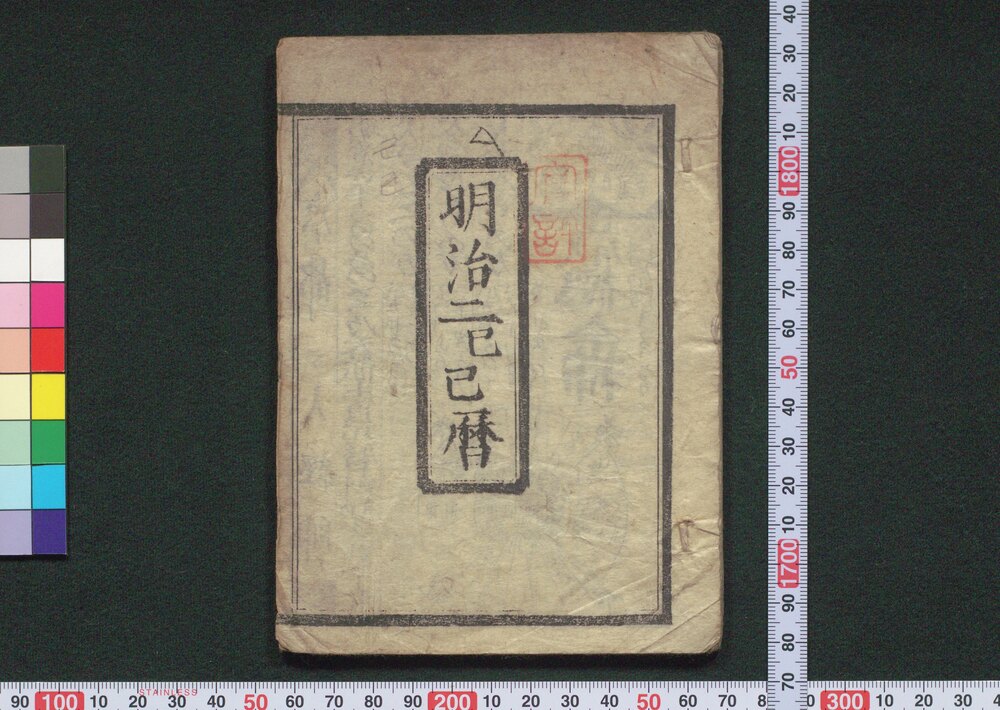 明治二己巳暦
40
30
20
10
1800
90
80
70
60
50
40
30
20
10
1700
90
80
70
90 100 10 20 30 40 50 60 70 80 90 200 10 20 30 40 50 60 70 8 0 300 10 20 30 4
STAINLESS